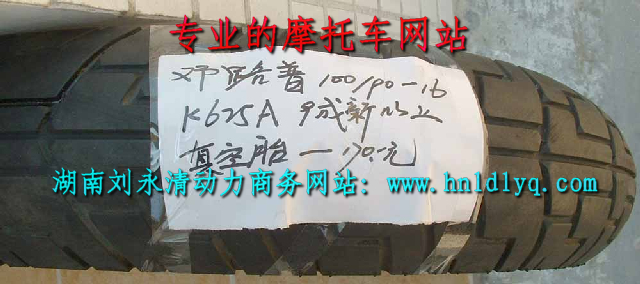 专业的摩托车网站
邓路普 100/90-16
K625A 9成新以上
真空胎 一170元
湖南刘永清动力商务网站：www.hnldlyq.com